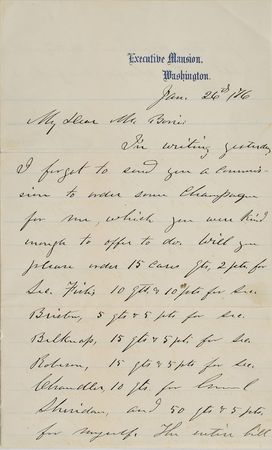 Executive Mansion.
Washington.
Jan. 26th /76
My Dear Mr. Borie
In writing yesterday
I forgot to send you a commis-
sion to order some Champagne
for me, which you were kind
enough to offer to do. Will you
please order 15 cases qts, 2 pts. for
Sec. Fish, 10 qts & 10 pts for Sec.
Bristow, 5 qts & 5 pts for Sec.
Belknap, 15 qts & 5 pts. for Sec.
Robeson, 15 qts & 5 pts for Sec.
Chandler, 10 qts. for General
Sheridan, and 50 qts & 5 pts.
for myself. The entire bill